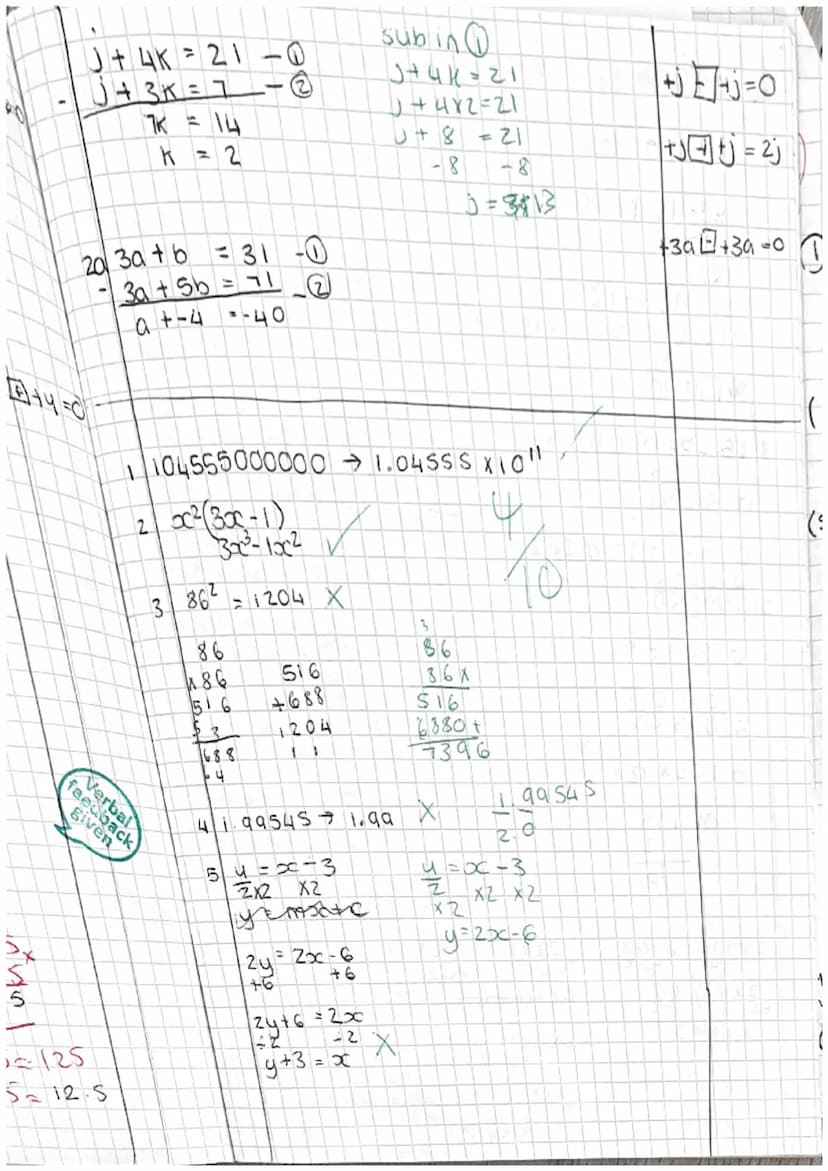 j + 4k = 21 - ①
- j + 3k = 7 - ②
7k = 14
k = 2
sub in ①
j + 4k = 21
j + 4x2 = 21
j + 8 = 21
-8 -8
j = 13
+j [-] +j = 0
+j [+] +j = 2j
+3a [-] +3a = 0
2a) 3a + b = 31 - ①
- 3a + 5b = 71 - ②
a + -4 = -40
+4=0
1 104555000000 → 1.04555 x10¹¹
2 x²(3x - 1)
3x³ - 1x² ✓
4/10
3 86² = 1204 X
86
x86
516
688
516
+688
1204
1 1
3
86
86 x
516
6880+
7396
Verbal
feedback
given
4 1.99545 → 1.99 X
1.99545
2.0
5 y/2 = x - 3
x2 x2
y = mx + c
2y = 2x - 6
+6 +6
2y + 6 = 2x
÷2 ÷2
y + 3 = x X
y/2 = x - 3
x2 x2 x2
y = 2x - 6
5
= 125
5 = 12.5